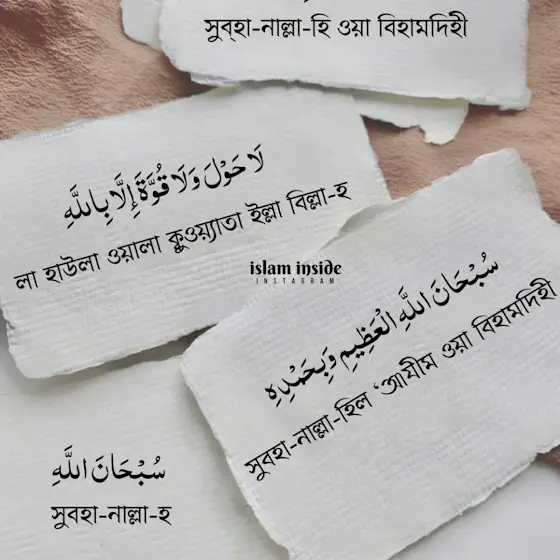 সুবহা-নাল্লা-হি ওয়া বিহামদিহী
لَا حَوْلَ وَلَا قُوَّةَ إِلَّا بِاللَّهِ
লা হাউলা ওয়ালা ক্বুওয়্যাতা ইল্লা বিল্লা-হ
islam inside
INSTAGRAM
سُبْحَانَ اللَّهِ الْعَظِيمِ وَبِحَمْدِهِ
সুবহা-নাল্লা-হিল ‘আযীম ওয়া বিহামদিহী
سُبْحَانَ اللَّهِ
সুবহা-নাল্লা-হ